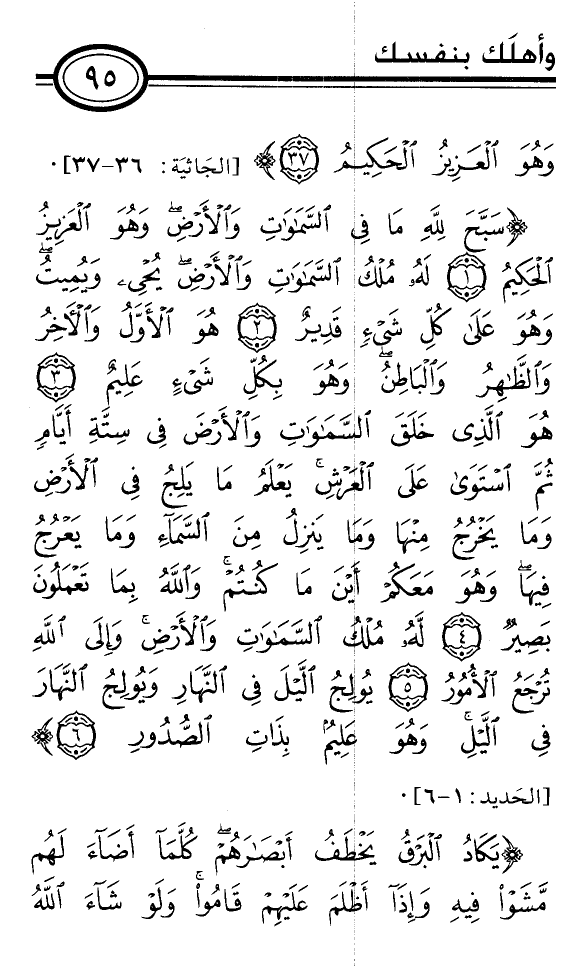 وأهلَك بنفسك
٩٥
وَهُوَ ٱلْعَزِيزُ ٱلْحَكِيمُ ٣٧﴾ [الجَاثية: ٣٦-٣٧].
﴿سَبَّحَ لِلَّهِ مَا فِى ٱلسَّمَٰوَٰتِ وَٱلْأَرْضِۖ وَهُوَ ٱلْعَزِيزُ
ٱلْحَكِيمُ ١ لَهُۥ مُلْكُ ٱلسَّمَٰوَٰتِ وَٱلْأَرْضِۖ يُحْىِۦ وَيُمِيتُۖ
وَهُوَ عَلَىٰ كُلِّ شَىْءٍ قَدِيرٌ ٢ هُوَ ٱلْأَوَّلُ وَٱلْآخِرُ
وَٱلظَّٰهِرُ وَٱلْبَاطِنُۖ وَهُوَ بِكُلِّ شَىْءٍ عَلِيمٌ ٣
هُوَ ٱلَّذِى خَلَقَ ٱلسَّمَٰوَٰتِ وَٱلْأَرْضَ فِى سِتَّةِ أَيَّامٍ
ثُمَّ ٱسْتَوَىٰ عَلَى ٱلْعَرْشِۚ يَعْلَمُ مَا يَلِجُ فِى ٱلْأَرْضِ
وَمَا يَخْرُجُ مِنْهَا وَمَا يَنزِلُ مِنَ ٱلسَّمَآءِ وَمَا يَعْرُجُ
فِيهَاۖ وَهُوَ مَعَكُمْ أَيْنَ مَا كُنتُمْۚ وَٱللَّهُ بِمَا تَعْمَلُونَ
بَصِيرٌ ٤ لَّهُۥ مُلْكُ ٱلسَّمَٰوَٰتِ وَٱلْأَرْضِۚ وَإِلَى ٱللَّهِ
تُرْجَعُ ٱلْأُمُورُ ٥ يُولِجُ ٱلَّيْلَ فِى ٱلنَّهَارِ وَيُولِجُ ٱلنَّهَارَ
فِى ٱلَّيْلِۚ وَهُوَ عَلِيمٌۢ بِذَاتِ ٱلصُّدُورِ ٦﴾
[الحَديد: ١-٦].
﴿يَكَادُ ٱلْبَرْقُ يَخْطَفُ أَبْصَٰرَهُمْۖ كُلَّمَآ أَضَآءَ لَهُم
مَّشَوْا۟ فِيهِ وَإِذَآ أَظْلَمَ عَلَيْهِمْ قَامُوا۟ۚ وَلَوْ شَآءَ ٱللَّهُ